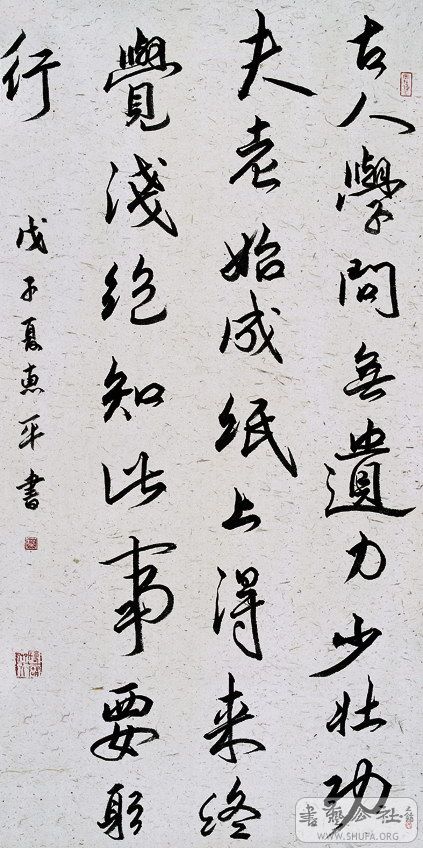 古人學問無遺力少壮功
夫老始成紙上得来終
覺淺絶知此事要躬
行
戊子夏惠平書
書藝公社
WWW.SHUFA.ORG